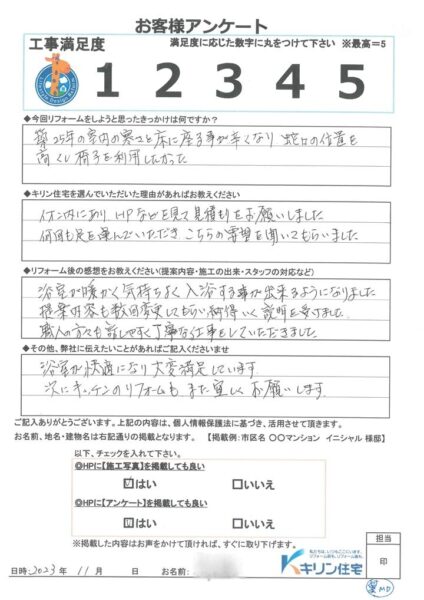 お客様アンケート
工事満足度
満足度に応じた数字に丸をつけて下さい ※最高=5
1 2 3 4 5
◆今回リフォームをしようと思ったきっかけは何ですか?
築25年の室内の寒さと床に座る事が辛くなり 蛇口の位置を
高くし椅子を利用したかった
◆キリン住宅を選んでいただいた理由があればお教えください
イオン内にあり、HPなどを見て見積りをお願いしました
何回も足を運んでいただき こちらの要望を聞いてもらいました
◆リフォーム後の感想をお教えください(提案内容・施工の出来・スタッフの対応など)
浴室が暖かく気持ちよく入浴する事が出来るようになりました
提案内容も数回変更してもらい納得いく説明を受けました
職人の方々も話しやすく丁寧な仕事をしていただきました
◆その他、弊社に伝えたいことがあればご記入くださいませ
浴室が快適になり大変満足しています
次にキッチンのリフォームも また宜しくお願いします
ご記入ありがとうございます。上記の内容は、個人情報保護法に基づき、活用させて頂きます。
お名前、地名・建物名は右記通りの掲載となります。 【掲載例:市区名 〇〇マンション イニシャル 様邸】
以下、チェックを入れて下さい。
◎HPに【施工写真】を掲載しても良い
☑はい □いいえ
◎HPに【アンケート】を掲載しても良い
☑はい □いいえ
※掲載した内容はお声をかけて頂ければ、すぐに取り下げます。
キリン住宅
担当
印
日時:2023年 11月 日 お名前: